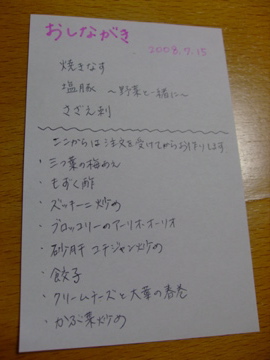 おしながき
2008.7.15
焼きなす
塩豚 〜野菜と一緒に〜
さざえ刺
ここからは注文を受けてからお作りします
・三つ葉の梅あえ
・もずく酢
・ズッキーニ炒め
・ブロッコリーのアーリオ・オーリオ
・砂肝 コチジャン炒め
・餃子
・クリームチーズと大葉の春巻
・かぶ菜炒め